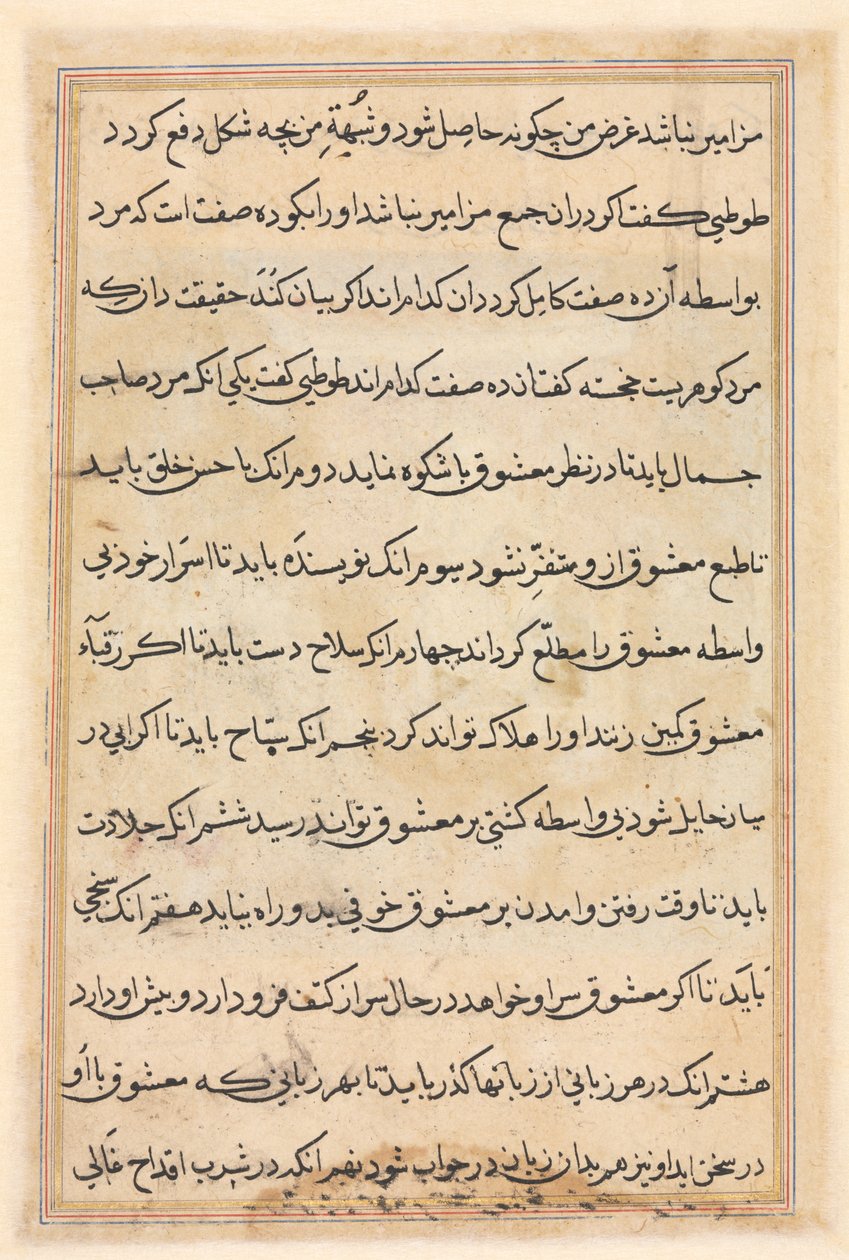 مزامیر نباشد غرض من چکونه حاصل شود و شُبُهةِ من بچه شکل دفع کردد
طوطی کفت اکر دران جمع مزامیر نباشد اورا بکو ده صفت است که مرد
بواسطه آن ده صفت کامِل کردد ان کدام اند اکر بیان کُنَدَ حقیقت دان کِه
مرد کوهریست خجسته کفت ان ده صفت کدام اند طوطی کفت یکی انک مرد صاحب
جمال باید تا در نظر معشوق با شکوه نماید دوم انک با حسن خلق باید
تا طبع معشوق از و متنفِّر نشود سیوم انک نویسندَه باید تا اسَرار خود بی
واسطه معشوق را مطلّع کرداند چهارم انک سلاح دست باید تا اکر رَقبآء
معشوق کمین زنند اورا هلاک تواند کرد پنجم انک سبّاح باید تا اکر ابی در
میان حایل شود بی واسطه کشتی بر معشوق تواند رسید ششم انک جلادت
باید تا وقت رفتن و امدن بر معشوق خوفی بدو راه نیابد هفتم انک سخی
بایَد تا اکر معشوق سر او خواهد در حال سر از کتف فرود ارد و پیش او دارد
هشتم انک در هر زبانی از زبانها کذر باید تا بهر زبانی که معشوق با اُو
در سخن اید او نیز هم بدان زبان در جواب شود نهم انک در شرب اقداح غَالی